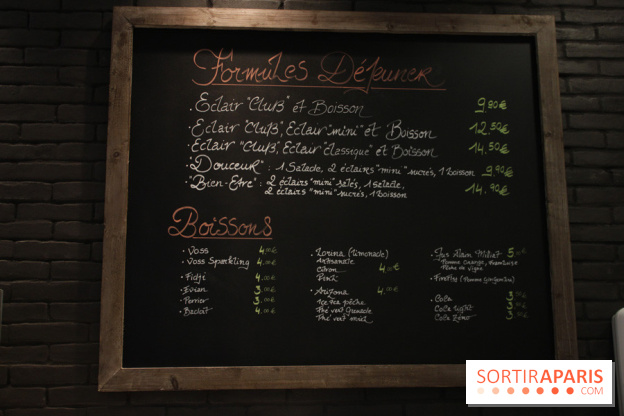 Formules Déjeuner
. Eclair "Club" et Boisson 9.90€
. Eclair "Club", Eclair "mini" et Boisson 12.50€
. Eclair "Club", Eclair "classique" et Boisson 14.50€
. "Douceur" : 1 Salade, 2 éclairs "mini" sucrés, 1 boisson 9.90€
. "Bien-Etre" : 2 éclairs "mini" salés, 1 salade, 14.90€
2 éclairs "mini" sucrés, 1 boisson
Boissons
. Voss 4.00€
. Voss Sparkling 4.00€
. Fidji 4.00€
. Evian 3.00€
. Perrier 3.00€
. Badoit 4.00€
. Lorina (limonade)
Artisanale
Citron 4.00€
Pink
. Arizona 4.00€
Ice tea pêche
Thé vert Grenade
Thé vert miel
. Jus Alain Milliat 5.00€
Pomme Orange, Framboise
Pêche de Vigne
. Firefly (Pomme Gingembre)
. Coca 3.00€
Coca light 3.00€
Coca Zéro 3.00€
SORTIRAPARIS
.COM